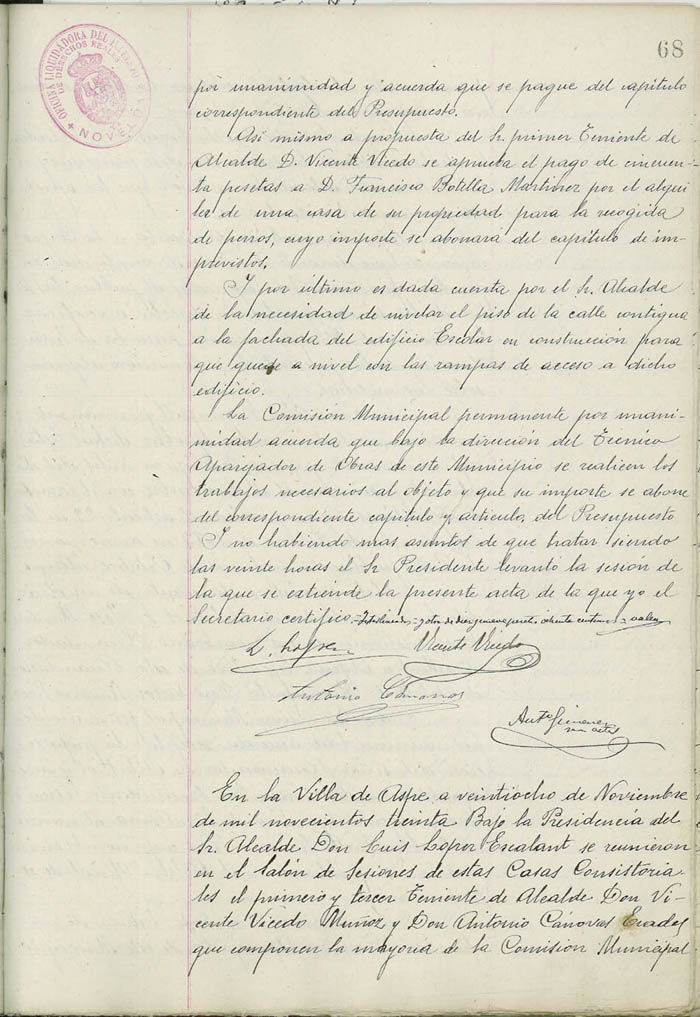 68
OFICINA LIQUIDADORA DEL IMPUESTO
DE DERECHOS REALES
por unanimidad y acuerda que se pague del capitulo
correspondiente del Presupuesto.
Asi mismo a propuesta del Sr. primer Teniente de
Alcalde D. Vicente Vicedo se aprueba el pago de cincuen-
ta pesetas a D. Francisco Botella Martinez por el alqui-
ler de una casa de su propiedad para la recogida
de perros, cuyo importe se abonará del capitulo de im-
previstos.
Y por último es dada cuenta por el Sr. Alcalde
de la necesidad de nivelar el piso de la calle contigua
a la fachada del edificio Escolar en construcción para
que quede a nivel con las rampas de acceso a dicho
edificio.
La Comisión Municipal permanente por unani-
midad acuerda que bajo la dirección del Tecnico
Aparejador de Obras de este Municipio se realicen los
trabajos necesarios al objeto y que su importe se abone
del correspondiente capitulo y articulo, del Presupuesto
Y no habiendo mas asuntos de que tratar siendo
las veinte horas el Sr. Presidente levantó la sesión de
la que se extiende la presente acta de la que yo el
Secretario certifico.
Vicente Vicedo
Antonio Cánovas
En la Villa de Aspe a veintiocho de Noviembre
de mil novecientos treinta Bajo la Presidencia del
Sr. Alcalde Don Luis Lopez Escalant se reunieron
en el Salón de Sesiones de estas Casas Consistoria-
les el primero y tercer Teniente de Alcalde Don Vi-
cente Vicedo Muñoz y Don Antonio Cánovas
que componen la mayoria de la Comisión Municipal